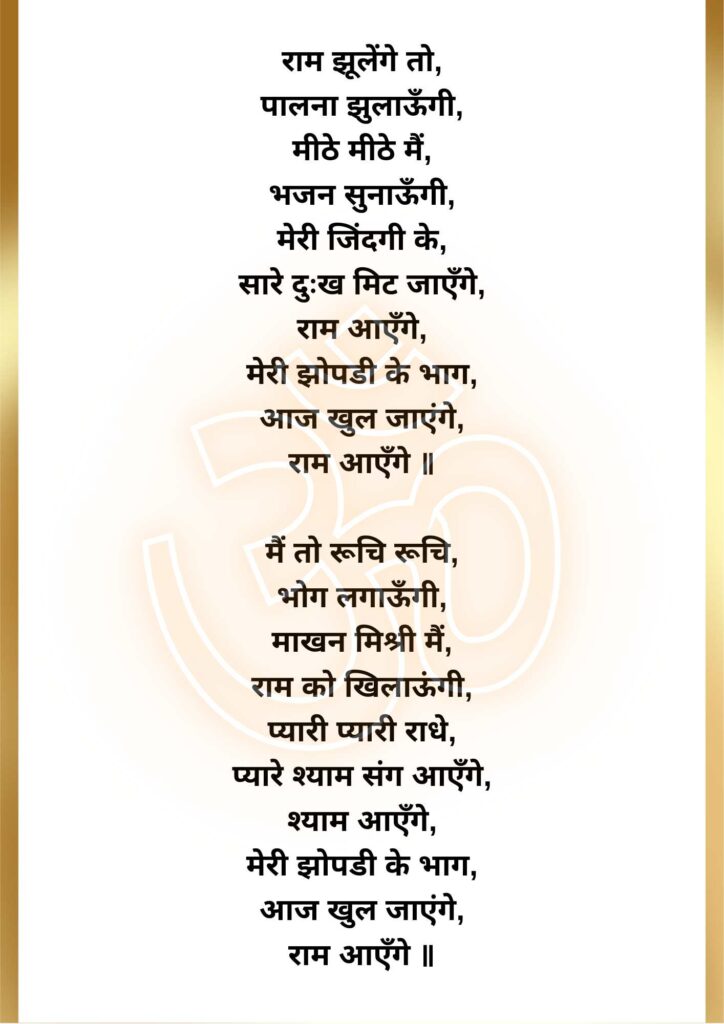 राम झूलेंगे तो,
पालना झुलाऊँगी,
मीठे मीठे मैं,
भजन सुनाऊँगी,
मेरी जिंदगी के,
सारे दुःख मिट जाएँगे,
राम आएँगे,
मेरी झोपडी के भाग,
आज खुल जाएंगे,
राम आएँगे ॥
मैं तो रूचि रूचि,
भोग लगाऊँगी,
माखन मिश्री मैं,
राम को खिलाऊंगी,
प्यारी प्यारी राधे,
प्यारे श्याम संग आएँगे,
श्याम आएँगे,
मेरी झोपडी के भाग,
आज खुल जाएंगे,
राम आएँगे ॥